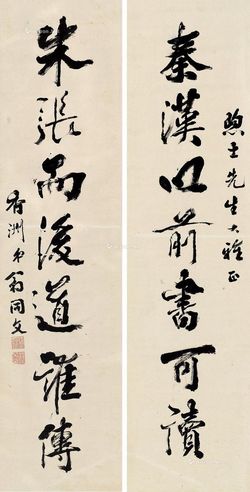 秦漢以前書可讀
煦士先生大雅正
朱張而後道誰傳
弟翁同文